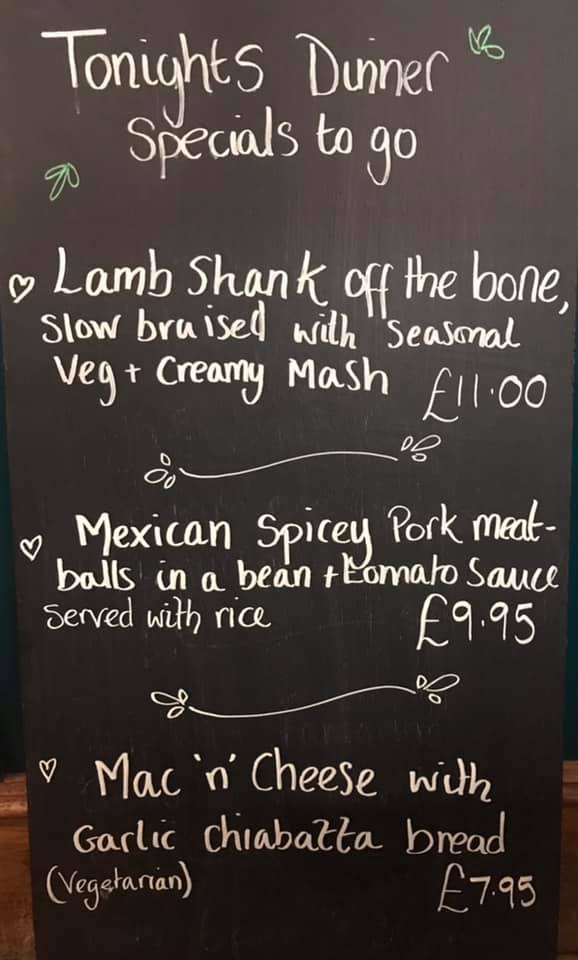 Tonights Dinner
Specials to go
Lamb Shank off the bone,
Slow braised with seasonal
Veg + Creamy Mash £11.00
Mexican Spicey Pork meat-
balls in a bean + tomato Sauce
Served with rice £9.95
Mac 'n' Cheese with
Garlic chiabatta bread
(Vegetarian) £7.95